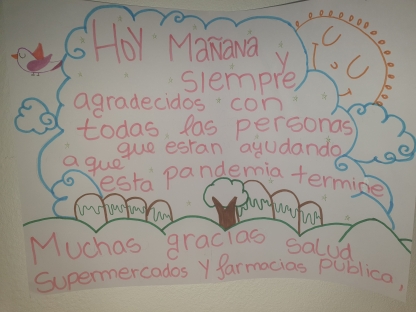 Hoy Mañana y
siempre
agradecidos con
todas las personas
que estan ayudando
a que
esta pandemia termine
Muchas gracias salud
Supermercados y farmacias pública,